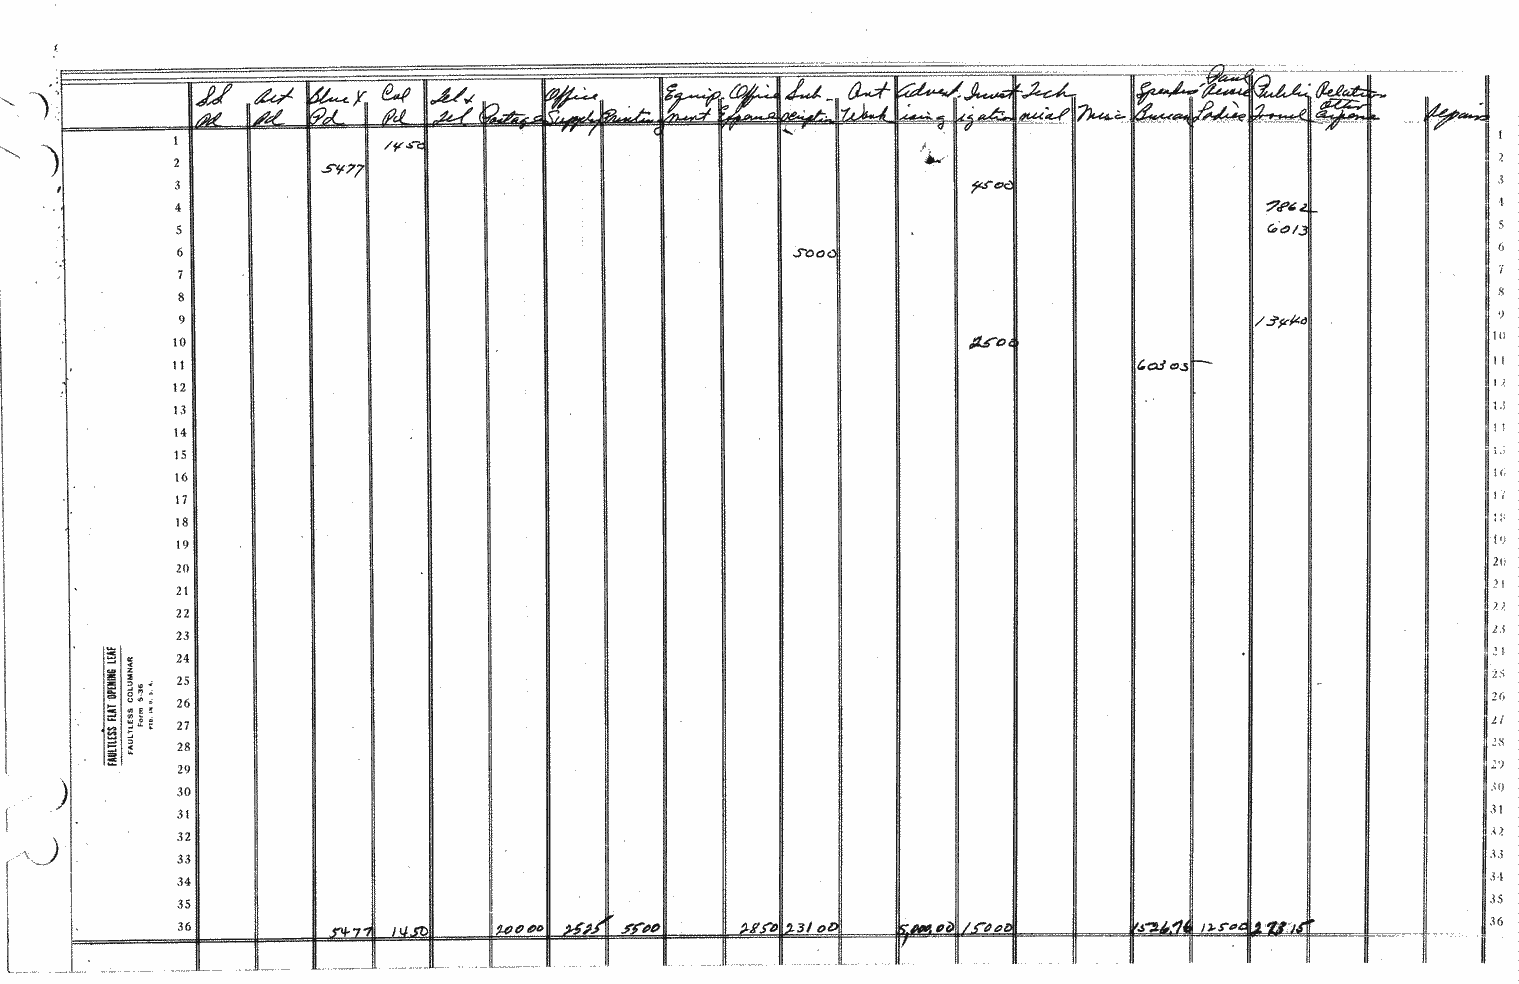 SS Act Blue X Cal Tel & Office Equip Office Sub Art Advert Invest Tech Speakers Public Relation
Pd Pd Pd Pd Tel Postage Supply Printing ment Expense scription Work ising igation nical Misc Bureau Ladies Travel Other Expense Repairs
1 1450 1
2 5477 2
3 4500 3
4 7862 4
5 6013 5
6 5000 6
7 7
8 8
9 13440 9
10 2500 10
11 60305 11
12 12
13 13
14 14
15 15
16 16
17 17
18 18
19 19
20 20
21 21
22 22
23 23
24 24
25 25
26 26
27 27
28 28
29 29
30 30
31 31
32 32
33 33
34 34
35 35
36 5477 1450 20000 2525 5500 2850 23100 5,000.00 15000 152676 12500 27315 36
FAULTLESS FLAT OPENING LEAF
FAULTLESS COLUMNAR
Form 5-36
PTD. IN U. S. A.